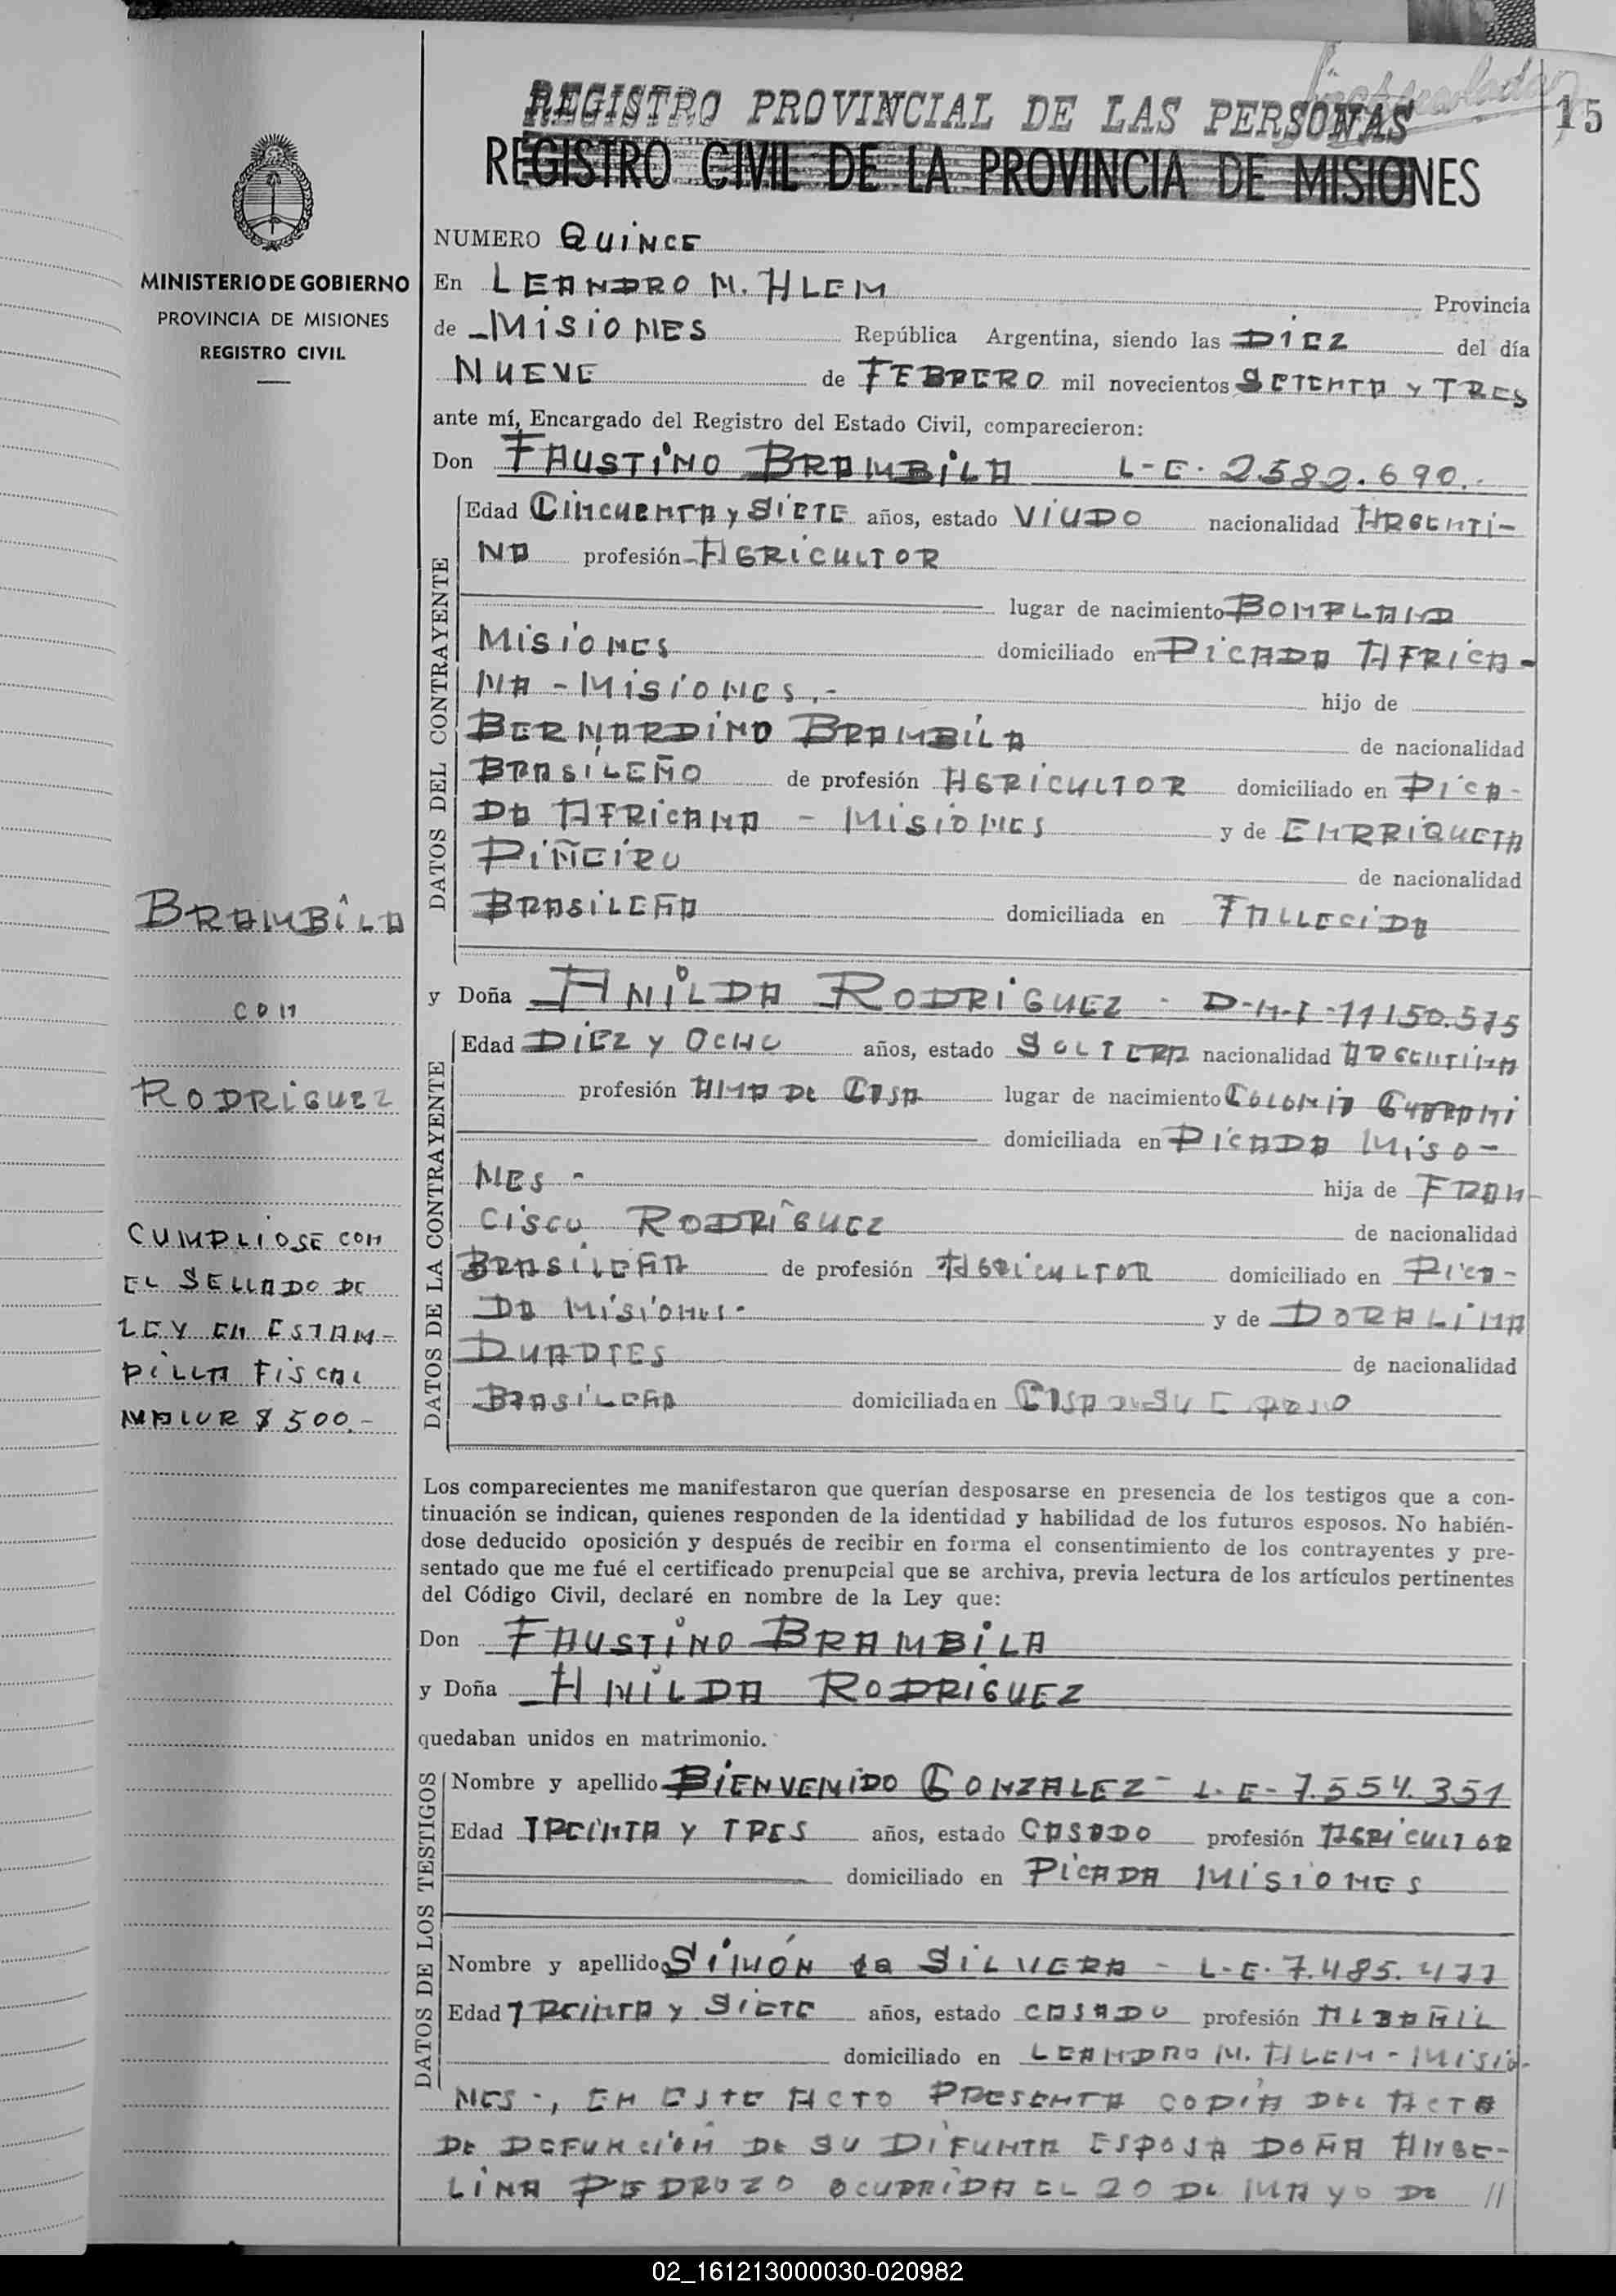 REGISTRO PROVINCIAL DE LAS PERSONAS
15
REGISTRO CIVIL DE LA PROVINCIA DE MISIONES
MINISTERIO DE GOBIERNO
PROVINCIA DE MISIONES
REGISTRO CIVIL
NUMERO QUINCE
En LEANDRO N. ALEM Provincia
de MISIONES República Argentina, siendo las DIEZ del día
NUEVE de FEBRERO mil novecientos SETENTA Y TRES
ante mí, Encargado del Registro del Estado Civil, comparecieron:
Don FAUSTINO BRAMBILA L-E. 2.582.690.
DATOS DEL CONTRAYENTE
Edad CINCUENTA Y SIETE años, estado VIUDO nacionalidad ARGENTI-
NA profesión AGRICULTOR
lugar de nacimiento BOMPLAND
MISIONES domiciliado en PICADA AFRICA-
NA - MISIONES.- hijo de
BERNARDINO BRAMBILA de nacionalidad
BRASILEÑO de profesión AGRICULTOR domiciliado en PICA-
DA AFRICANA - MISIONES y de ENRRIQUETA
PIÑEIRO de nacionalidad
BRASILEÑA domiciliada en FALLECIDA
BRAMBILA
CON
RODRIGUEZ
CUMPLIOSE CON
EL SELLADO DE
LEY EN ESTAM-
PILLA FISCAL
VALOR $ 500.-
y Doña ANILDA RODRIGUEZ - D-N-I-11150.575
DATOS DE LA CONTRAYENTE
Edad DIEZ Y OCHO años, estado SOLTERA nacionalidad ARGENTINA
profesión AMA DE CASA lugar de nacimiento COLONIA GUARANI
domiciliada en PICADA MISO-
NES - hija de FRAN-
CISCO RODRIGUEZ de nacionalidad
BRASILEÑA de profesión AGRICULTOR domiciliado en PICA-
DA MISIONES- y de DORALINA
DUARTES de nacionalidad
BRASILEÑA domiciliada en CASA DE SU ESPOSO
Los comparecientes me manifestaron que querían desposarse en presencia de los testigos que a con-
tinuación se indican, quienes responden de la identidad y habilidad de los futuros esposos. No habién-
dose deducido oposición y después de recibir en forma el consentimiento de los contrayentes y pre-
sentado que me fué el certificado prenupcial que se archiva, previa lectura de los artículos pertinentes
del Código Civil, declaré en nombre de la Ley que:
Don FAUSTINO BRAMBILA
y Doña ANILDA RODRIGUEZ
quedaban unidos en matrimonio.
DATOS DE LOS TESTIGOS
Nombre y apellido BIENVENIDO GONZALEZ - L.E-7.554.351
Edad TREINTA Y TRES años, estado CASADO profesión AGRICULTOR
domiciliado en PICADA MISIONES
Nombre y apellido SIMÓN da SILVERA - L-E. 7.485.477
Edad TREINTA Y SIETE años, estado CASADO profesión ALBAÑIL
domiciliado en LEANDRO N. ALEM - MISIO-
NES-, EN ESTE ACTO PRESENTA COPIA DEL ACTA
DE DEFUNCIÓN DE SU DIFUNTA ESPOSA DOÑA ANGE-
LINA PEDROZO OCURRIDA EL 20 DE MAYO DE //
02_161213000030-020982